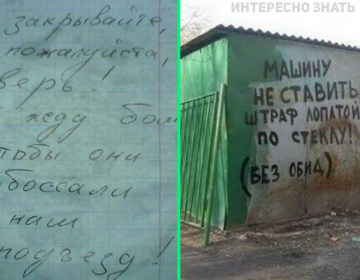 закрывайте,
пожалуйста,
верь!
жду бом
тобы они
боссали
наш
подъезд!
ИНТЕРЕСНО ЗНАТЬ
МАШИНУ
НЕ СТАВИТЬ
ШТРАФ ЛОПАТОЙ
ПО СТЕКЛУ!
(БЕЗ ОБИД)